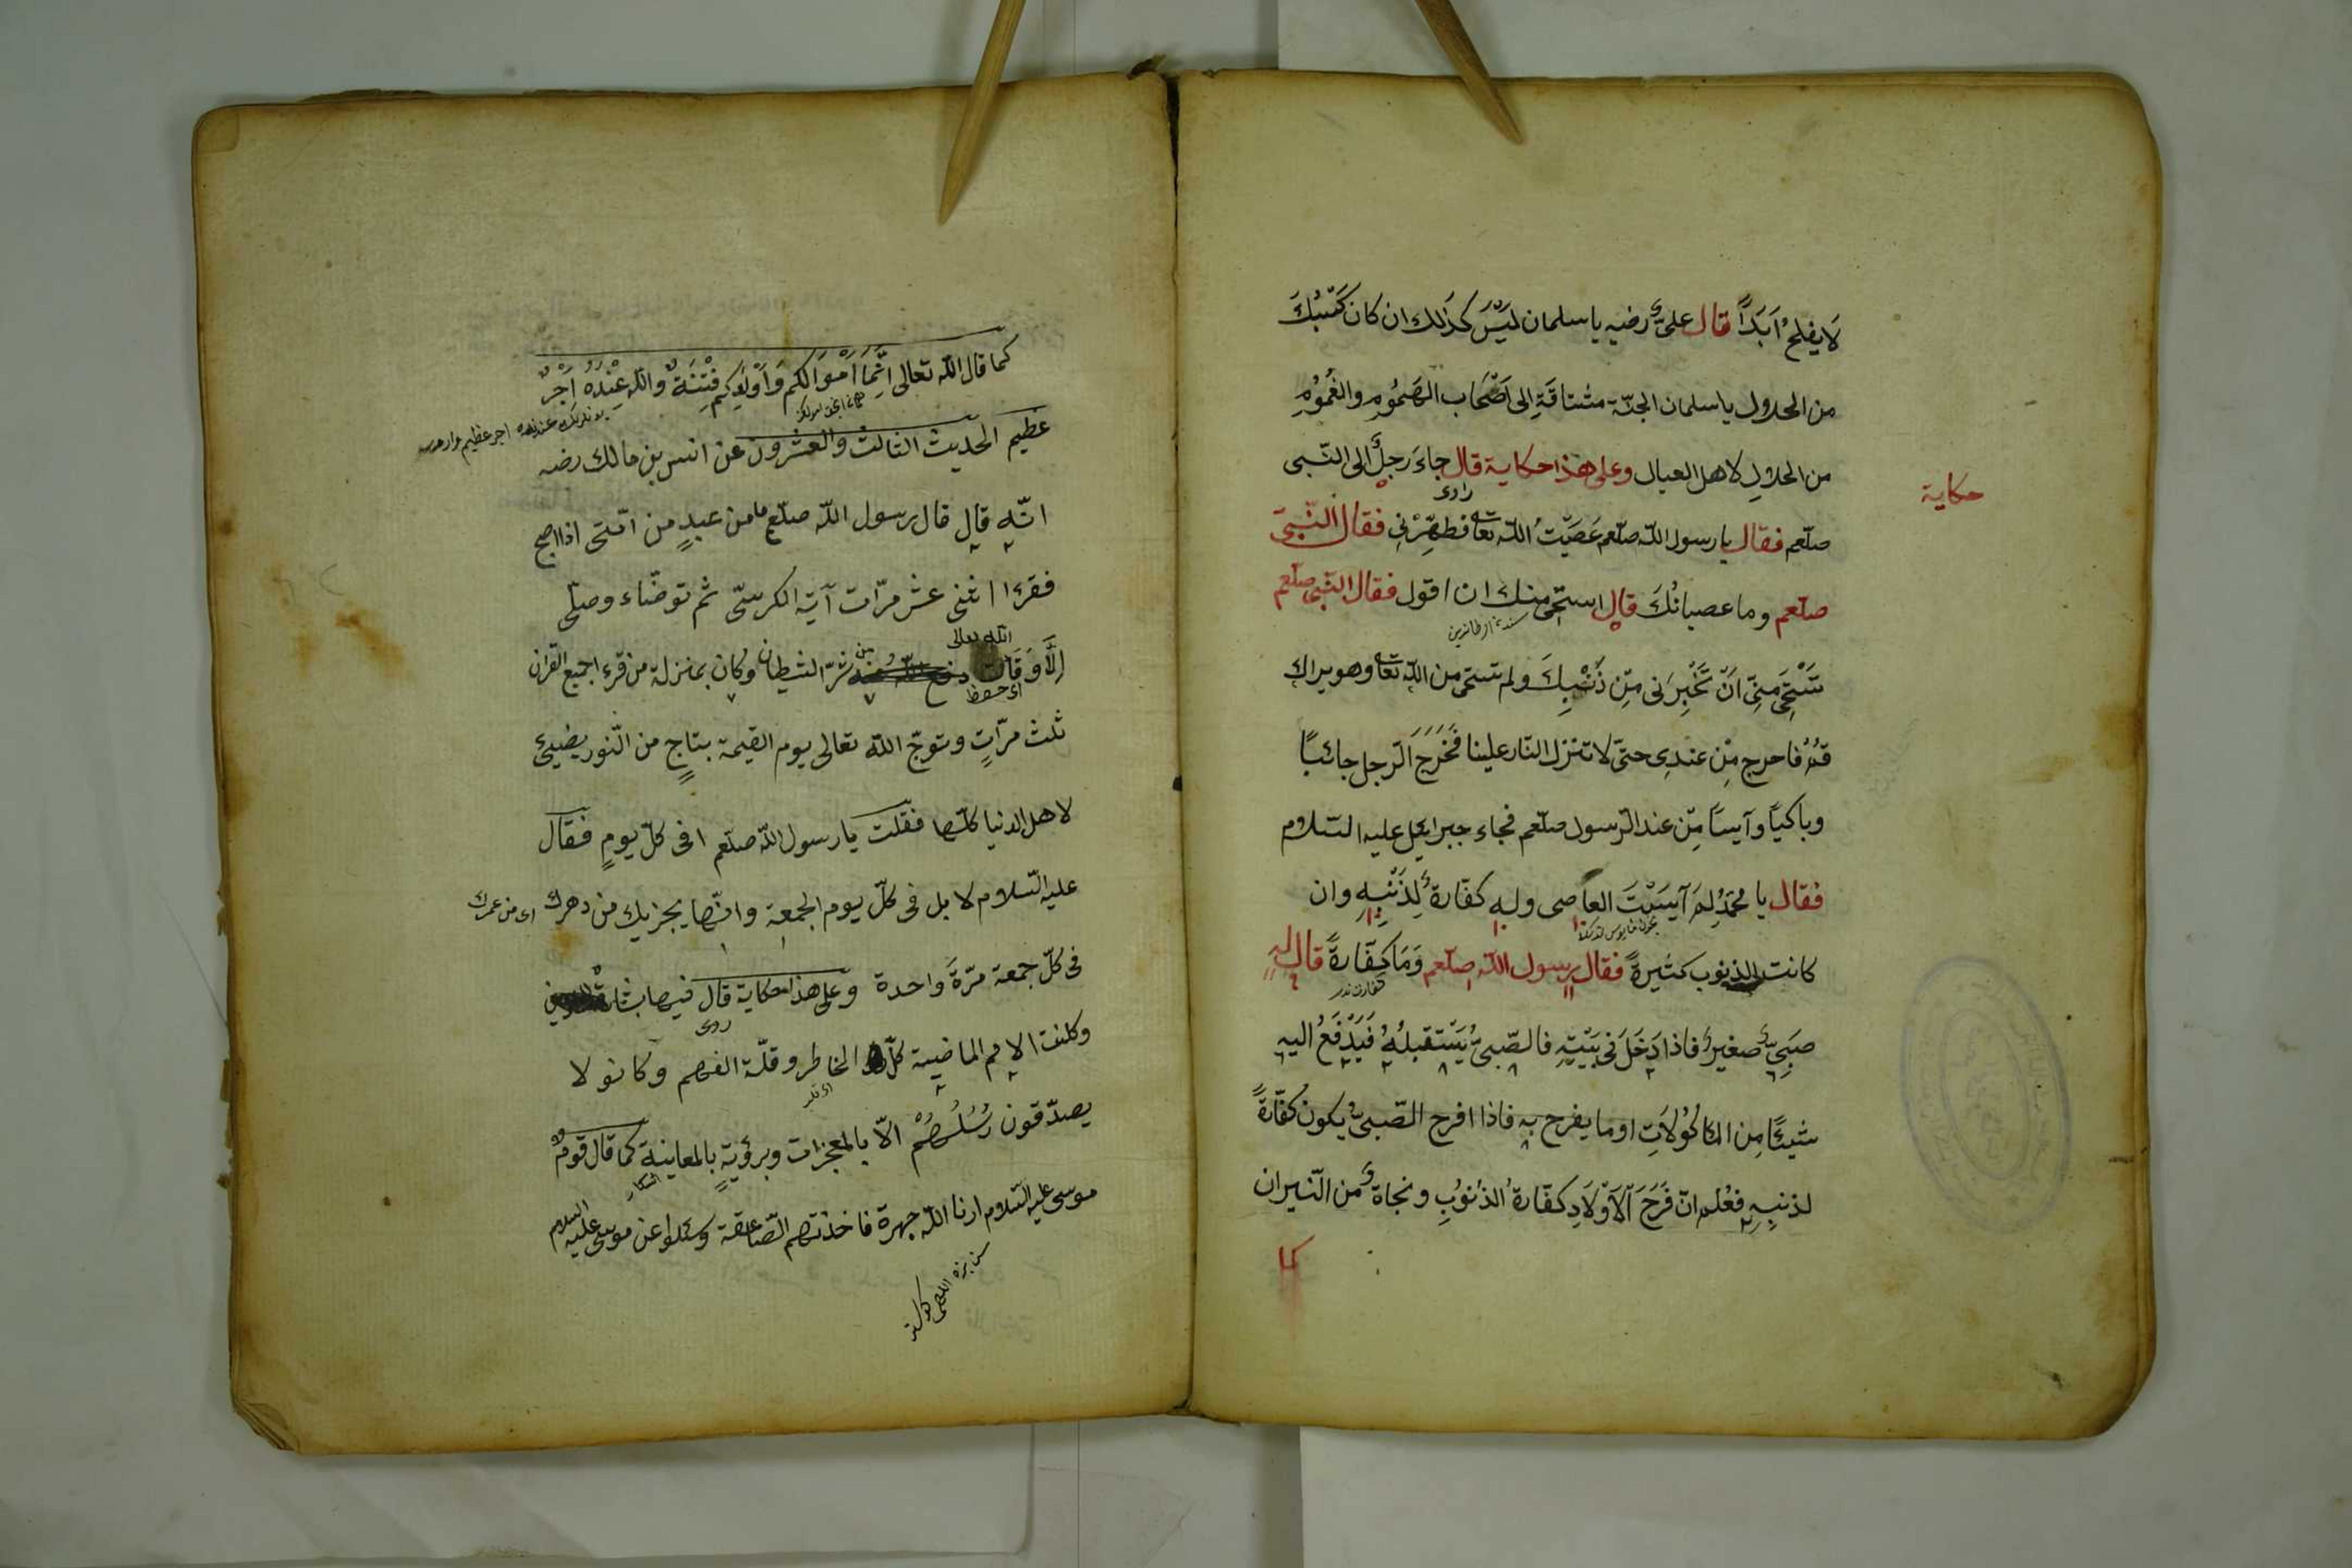 لَا يفلحُ اَبَدَاً قال علىٌّ رضيه يا سلمان لَيْسَ كذلك ان كان كَسْبُكَ
من الحلال يا سلمان الجنّة مشتاقَة الى اَصْحَاب الهَمُومِ والغُمُومِ
من الحلال لاهل العيال وعلى هذا حكاية قال جاءَ رَجلٌ الى النّبى
حكاية
راوى
صلّعم فقال يا رسول اللّه صلّعم عَصَيْتُ اللّه تعا فطهّرْنى فقال النّبىّ
صلّعم وما عصيانُكَ قال استحى منك ان اقول فقال النّبى صلّعم
تَسْتَحْىِ مِنىّ اَنْ تُخْبِرَنى مِنْ ذَنْبِكَ ولم تستحى من اللّه تعا وهو يراك
قُمْ فاحرج مِنْ عندِى حتىّ لا تنزل النّار علينا فَخَرَجَ الرّجل جائبًا
وباكيًا وآيسًا مِنْ عند الرّسول صلّعم فجاء جبرايل عليه السّلام
فقال يا محمّدُ لِمَ آيسْتَ العاصى وله كفّارةٌ لِذَنْبِهِ وان
كانت الذنوب كثيرةً فقال رسول اللّه صلّعم وَمَا كفّارةً قال له
صَبِىٌّ صغيرٌ فاذا دَخَلَ فى بَيْتِهِ فالصّبىُّ يَسْتقبلُهُ فَيَدْفَعُ اليه
شيئًا مِن المَاكُولَاتِ او ما يفرح به فاذا افرح الصّبىُّ يكون كُفّارةً
لذنبِهِ فعُلم انّ فَرَحَ الَاوْلَادِ كفّارةُ الذُنوُبِ ونجاةٌ من النّيران
كما
كما قال اللّه تعالى اِنَّمَا اَمْوَالكُم وَاَوْلَادكم فِتْنَةٌ واللّه عِنْدَهُ اَجْرٌ
عظيم الحديث الثالث والعشرون عن انس بن مالك رضه
انّه قال قال رسول اللّه صلّعم ما من عبدٍ من امّتى اذا اصبح
فقرءا اثنى عشر مرّات آية الكرسىّ ثم توضّاء وصلّى
اللّه تعالى
اِلَّا وَقَاه من شرّ الشيطان وكان بمنزلة من قرء اجميع القران
اى حفظ
ثلث مرّاتٍ ويتوجّ اللّه تعالى يوم القيمة بتاجٍ من النّور يضيئ
لاهل الدنيا كلّها فقلت يا رسول اللّه صلّعم افى كلّ يومٍ فقال
عليه السّلام لا بل فى كلّ يوم الجمعة وانّها يجزيك من دهرك اى من عمرك
فى كلّ جمعة مرّةً واحدة وعلى هذا حكاية قال فيها بشارة
روى
وكلفت الامم الماضية كلّ الخاطر وقلّة الفهم وكانو لا
يصدّقون رُسُلَهُمْ الّا بالمعجزات وبرؤيةٍ بالمعاينة كما قال قومُ
موسى عليه السّلام ارنا اللّه جهرة فاخذتهم الصّاعقة وسئلوا عن موسى عليه السلام